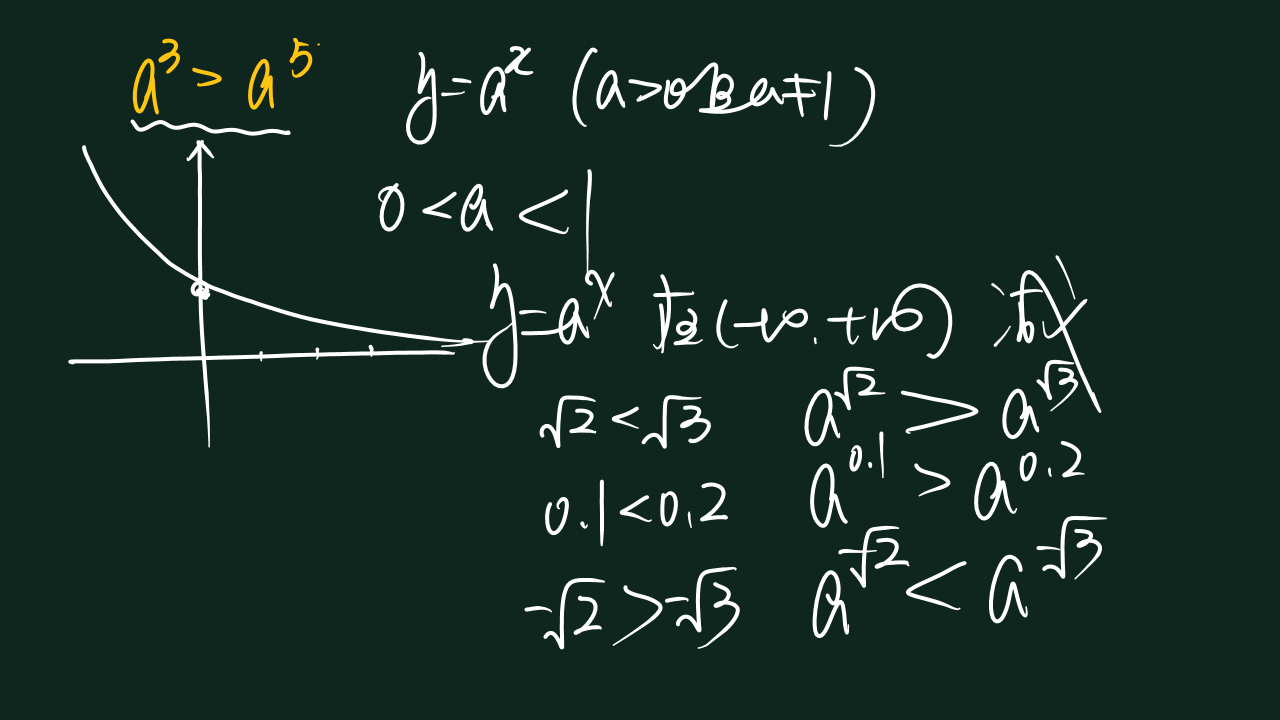 a³ > a⁵
y=aˣ (a>0且a≠1)
0<a<1
y=aˣ 在(-∞,+∞)减
√2<√3 a^√2 > a^√3
0.1<0.2 a^0.1 > a^0.2
-√2>-√3 a^-√2 < a^-√3